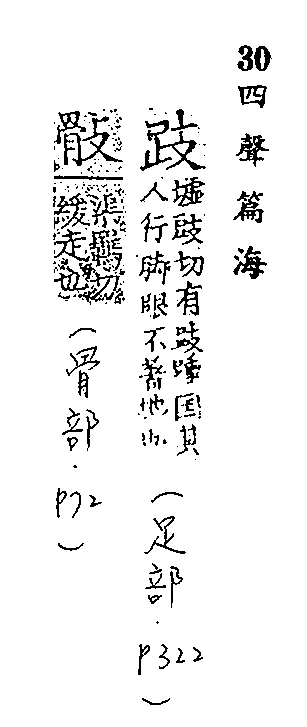 30 四聲篇海
跂 墟跂切有跂踵国其
人行脚眼不著地也
(足部. P322)
骰
緩走也
(骨部. P72)